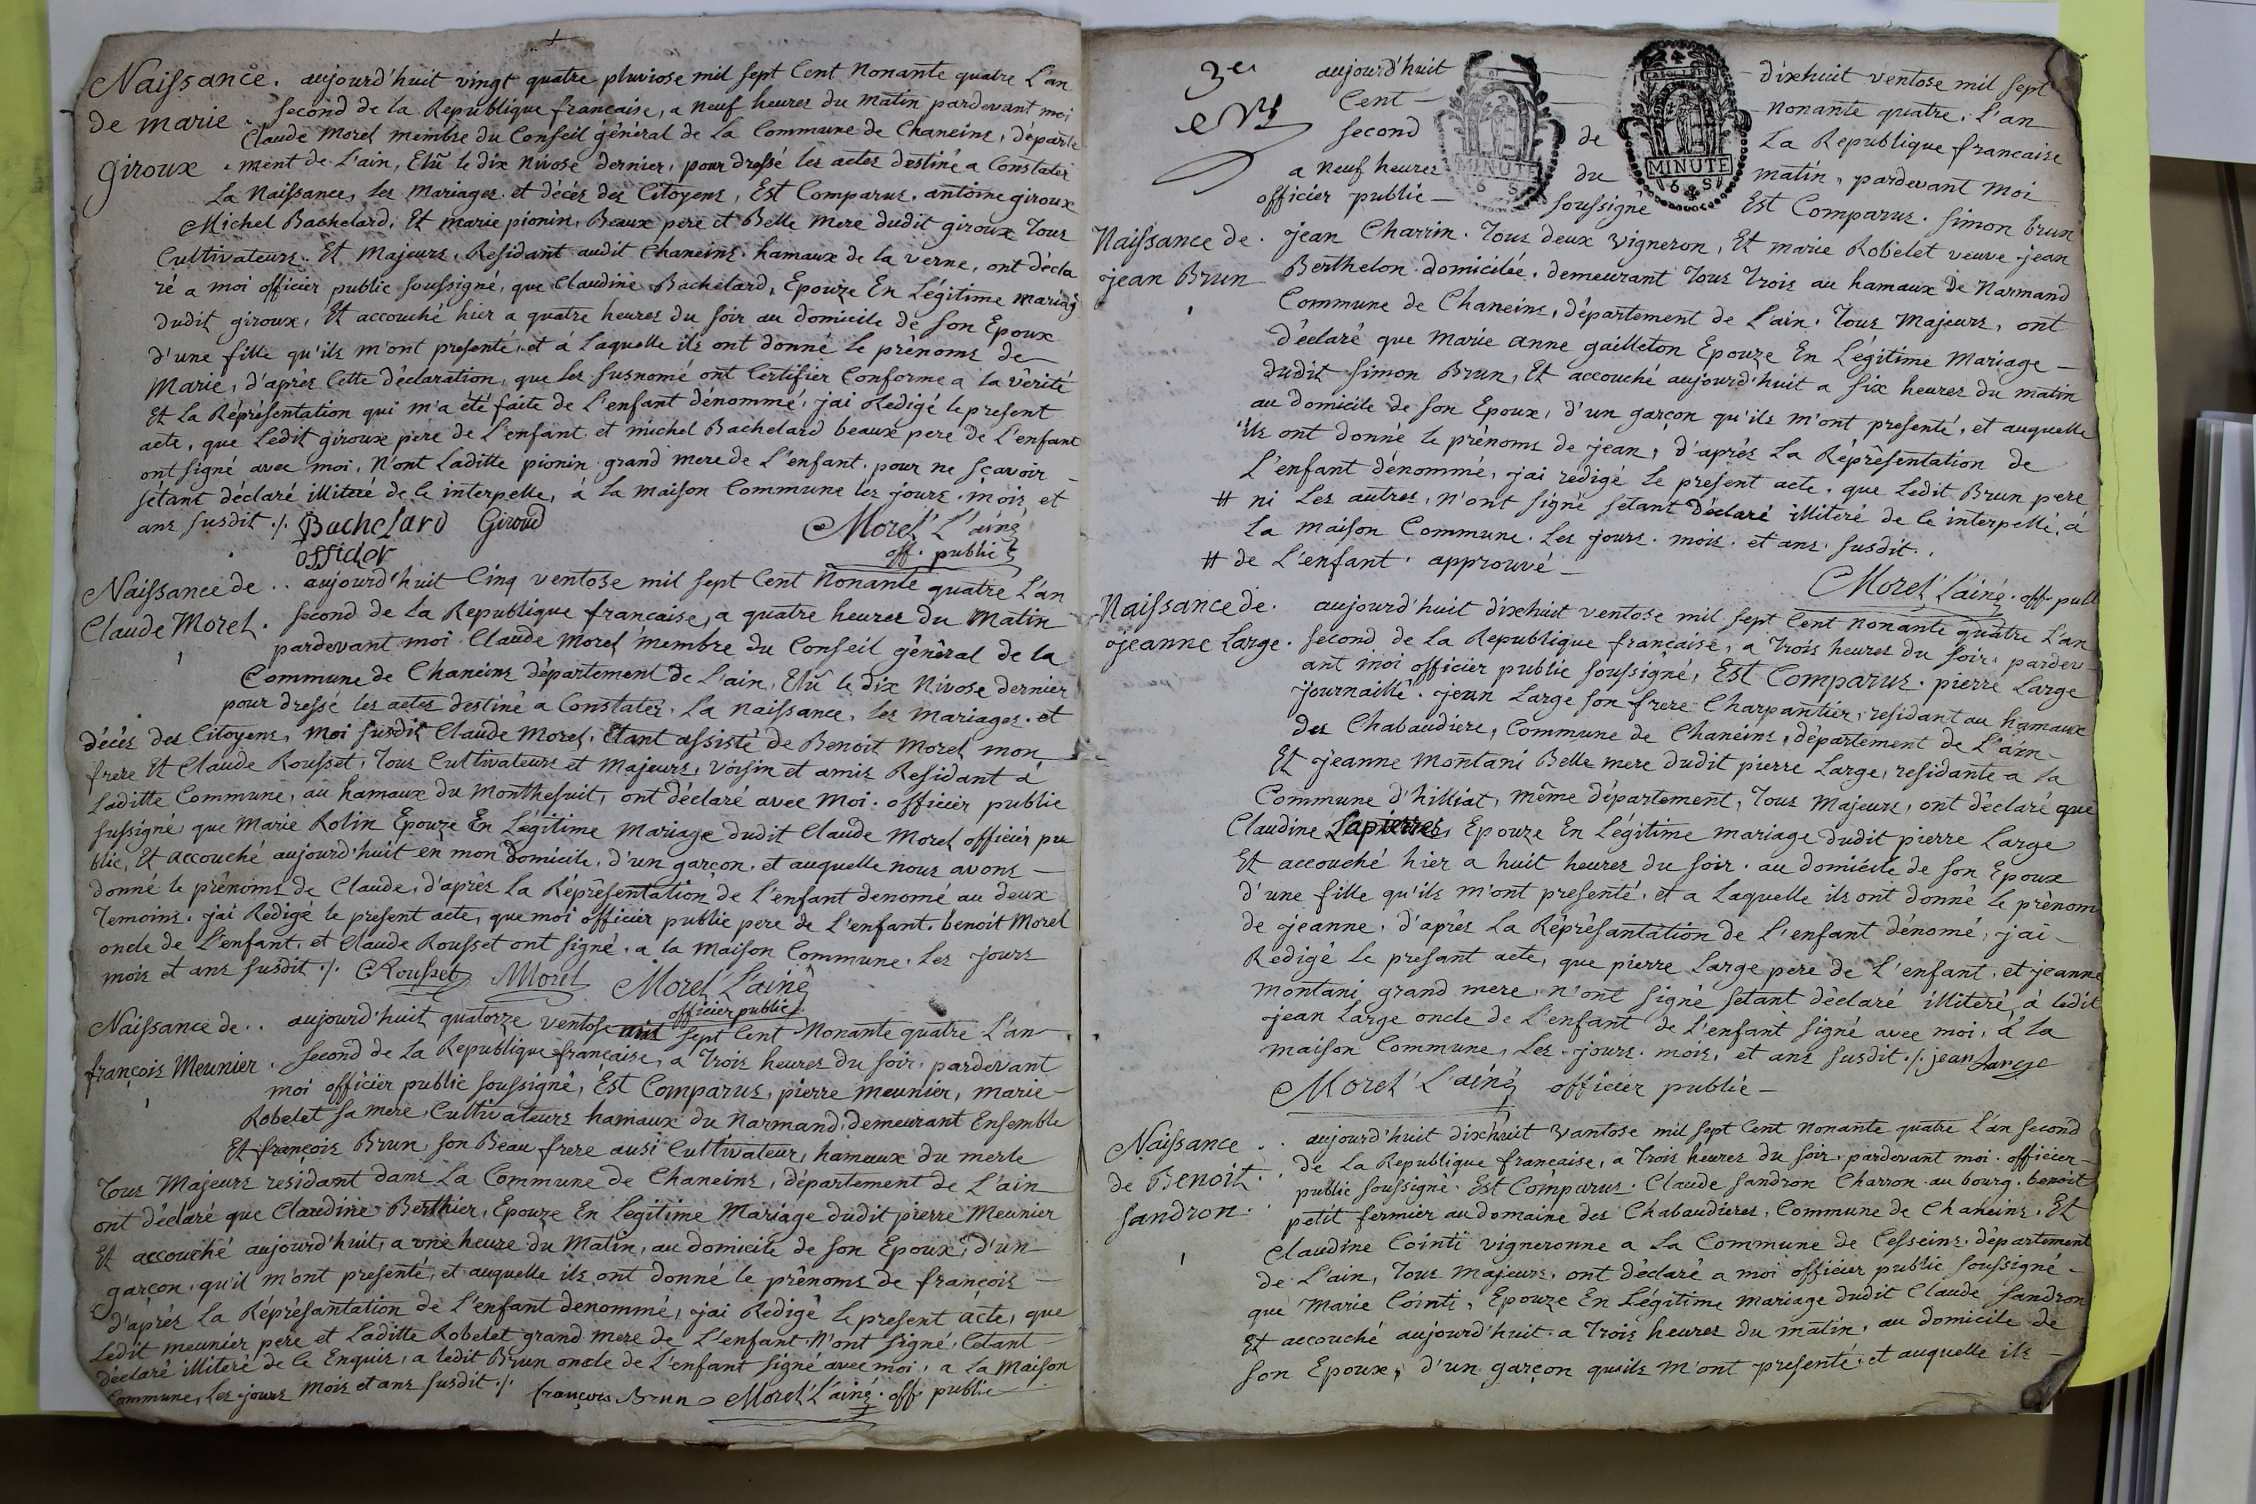 Naissance. aujourd'huit vingt quatre pluviose mil sept Cent Nonante quatre L'an
de marie. second de la Republique francaise, a neuf heures du matin pardevant moi
Claude Morel membre du Conseil général de La Commune de Chaneins, départe
giroux ment de L'ain, Elû le dix Nivose dernier, pour dressé les actes destiné a Constater
La Naissance, les Mariages et décès des Citoyens, Est Comparus. antoine giroux
Michel Bachelard, Et marie pionin, Beaux pere et Belle mere dudit giroux Tous
Cultivateurs Et Majeurs, Residant audit Chaneins hamaux de la verne, ont décla
ré a moi officier public soussigné, que Claudine Bachelard, Epouze En Légitime mariage
dudit giroux, Et accouché hier a quatre heures du soir au domicile de son Epoux
d'une fille qu'ils m'ont presenté, et á laquelle ils ont donné le prénoms de
Marie, d'aprés Cette déclaration, que les susnomé ont Certifier Conforme a la vérité
Et la Réprésentation qui m'a été faite de L'enfant dénommé, jai Redigé le present
acte, que Ledit giroux pere de L'enfant et michel Bachelard beaux pere de L'enfant
ont signé avec moi, N'ont Laditte pionin grand mere de L'enfant pour ne sçavoir
sétant déclaré illiteré de le interpelle, á la maison Commune les jours. mois et
ans susdit ./. Bachelard Giroud Morel L'ainé
officier off. public
Naissance de. aujourd'huit Cinq ventose mil sept Cent Nonante quatre L'an
Claude Morel. second de la Republique francaise, a quatre heures du Matin
pardevant moi Claude Morel membre du Conseil général de la
Commune de Chaneins département de L'ain, Elû le dix Nivose dernier
pour dressé les actes destiné a Constater La naissance, les mariages et
décès des Citoyens, moi susdit Claude Morel, Etant assisté de Benoit Morel mon
frere Et Claude Rousset, Tous Cultivateurs et majeurs, voisin et amis Residant á
Laditte Commune, au hamaux du Monthesuit, ont déclaré avec Moi officier public
sussigné, que Marie Rolin Epouze En Légitime Mariage dudit Claude Morel officier pu
blic, Et accouché aujourd'huit en mon domicile, d'un garçon et auquelle nous avons
donné le prénoms de Claude, d'aprés la Réprésentation de l'enfant denomé au deux
Temoins. jai Redigé le present acte, que moi officier public pere de L'enfant. benoit Morel
oncle de L'enfant, et Claude Rousset ont signé. a la Maison Commune. Les jours
mois et ans susdit ./. CRousset Morel Morel L'ainé
officier public
Naissance de. aujourd'huit quatorze ventose mil sept Cent Nonante quatre L'an
françois Meunier. second de La Republique francaise, a trois heures du soir, pardevant
moi officier public soussigné, Est Comparus, pierre meunier, marie
Robelet sa mere Cultivateurs hamaux du Narmand, demeurant Ensemble
Et françois Brun son Beau frere ausi Cultivateur, hamaux du merle
Tous Majeurs residant dans La Commune de Chaneins, département de L'ain
ont déclaré que Claudine Berthier, Epouze En Legitime Mariage dudit pierre Meunier
Et accouché aujourd'huit, a une heure du Matin, au domicile de son Epoux, d'un
garçon qu'il m'ont presenté, et auquelle ils ont donné le prénoms de françois
d'aprés La Réprésantation de L'enfant denommé, jai Redigé le present acte, que
Ledit meunier pere et Laditte Robelet grand mere de L'enfant N'ont signé, Cétant
déclaré illiteré de le Enquis, a ledit Brun oncle de L'enfant signé avec moi, a la Maison
Commune, les jours mois et ans susdit ./. françois Brun Morel L'ainé. off. public
3e aujourd'huit dixhuit ventose mil sept
Cent Nonante quatre. L'an
second de La Republique francaise
a Neuf heures du matin, pardevant moi
officier public soussigné Est Comparus. simon brun
MINUTE
6 S
MINUTE
6 S
Naissance de. jean Charrin. Tous deux vigneron, Et marie Robelet veuve jean
jean Brun Berthelon domicilée, demeurant Tous Trois au hamaux de Narmand
Commune de Chaneins, département de L'ain. Tous Majeurs, ont
déclaré que Marie anne gailleton Epouze En Légitime Mariage
dudit simon Brun, Et accouché aujourd'huit a six heures du matin
au domicile de son Epoux, d'un garçon qu'ils m'ont presenté, et auquelle
ils ont donné le prénoms de jean, d'aprés La Réprésentation de
L'enfant dénommé, jai redigé le present acte, que Ledit Brun pere
# ni Les autres, n'ont signé sétant déclaré illiteré de le interpellé, á
La maison Commune. Les jours. mois. et ans susdit.
# de L'enfant approuvé
Morel L'ainé. off. publ
Naissance de. aujourd'huit dixhuit ventose mil sept Cent nonante quatre L'an
jeanne Large. second de La Republique française, a trois heures du soir, pardev
ant moi officier public soussigné, Est Comparus. pierre Large
journaillé. jean Large son frere Charpantier, residant au hamaux
des Chabaudiere, Commune de Chaneins, département de L'ain
Et jeanne Montani Belle mere dudit pierre Large, residante a la
Commune d'hilliat, même département, Tous majeurs, ont déclaré que
Claudine Lapierre, Epouze En Légitime mariage dudit pierre Large
Et accouché hier a huit heures du soir. au domicile de son Epoux
d'une fille qu'ils m'ont presenté, et a Laquelle ils ont donné le prénom
de jeanne. d'aprés La Réprésantation de L'enfant dénomé, jai
Redigé Le presant acte, que pierre Large pere de L'enfant, et jeanne
montani grand mere, n'ont signé sétant déclaré illiteré, á ledit
jean Large oncle de L'enfant de L'enfant signé avec moi, á la
maison Commune, Les jours. mois, et ans susdit ./. jean Large
Morel L'ainé officier public
Naissance aujourd'huit dixhuit vantose mil sept Cent nonante quatre L'an second
de Benoit. de La Republique francaise, a trois heures du soir, pardevant moi officier
Sandron. public soussigné. Est Comparus. Claude Sandron Charron au bourg. benoit
petit fermier au domaine des Chabaudieres, Commune de Chaneins, Et
Claudine Cointi vigneronne a La Commune de Cesseins département
de L'ain, Tous Majeurs, ont déclaré a moi officier public soussigné
que Marie Cointi, Epouze En Légitime mariage dudit Claude Sandron
Et accouché aujourd'huit a trois heures du matin, au domicile de
son Epoux, d'un garçon qu'ils m'ont presenté, et auquelle ils